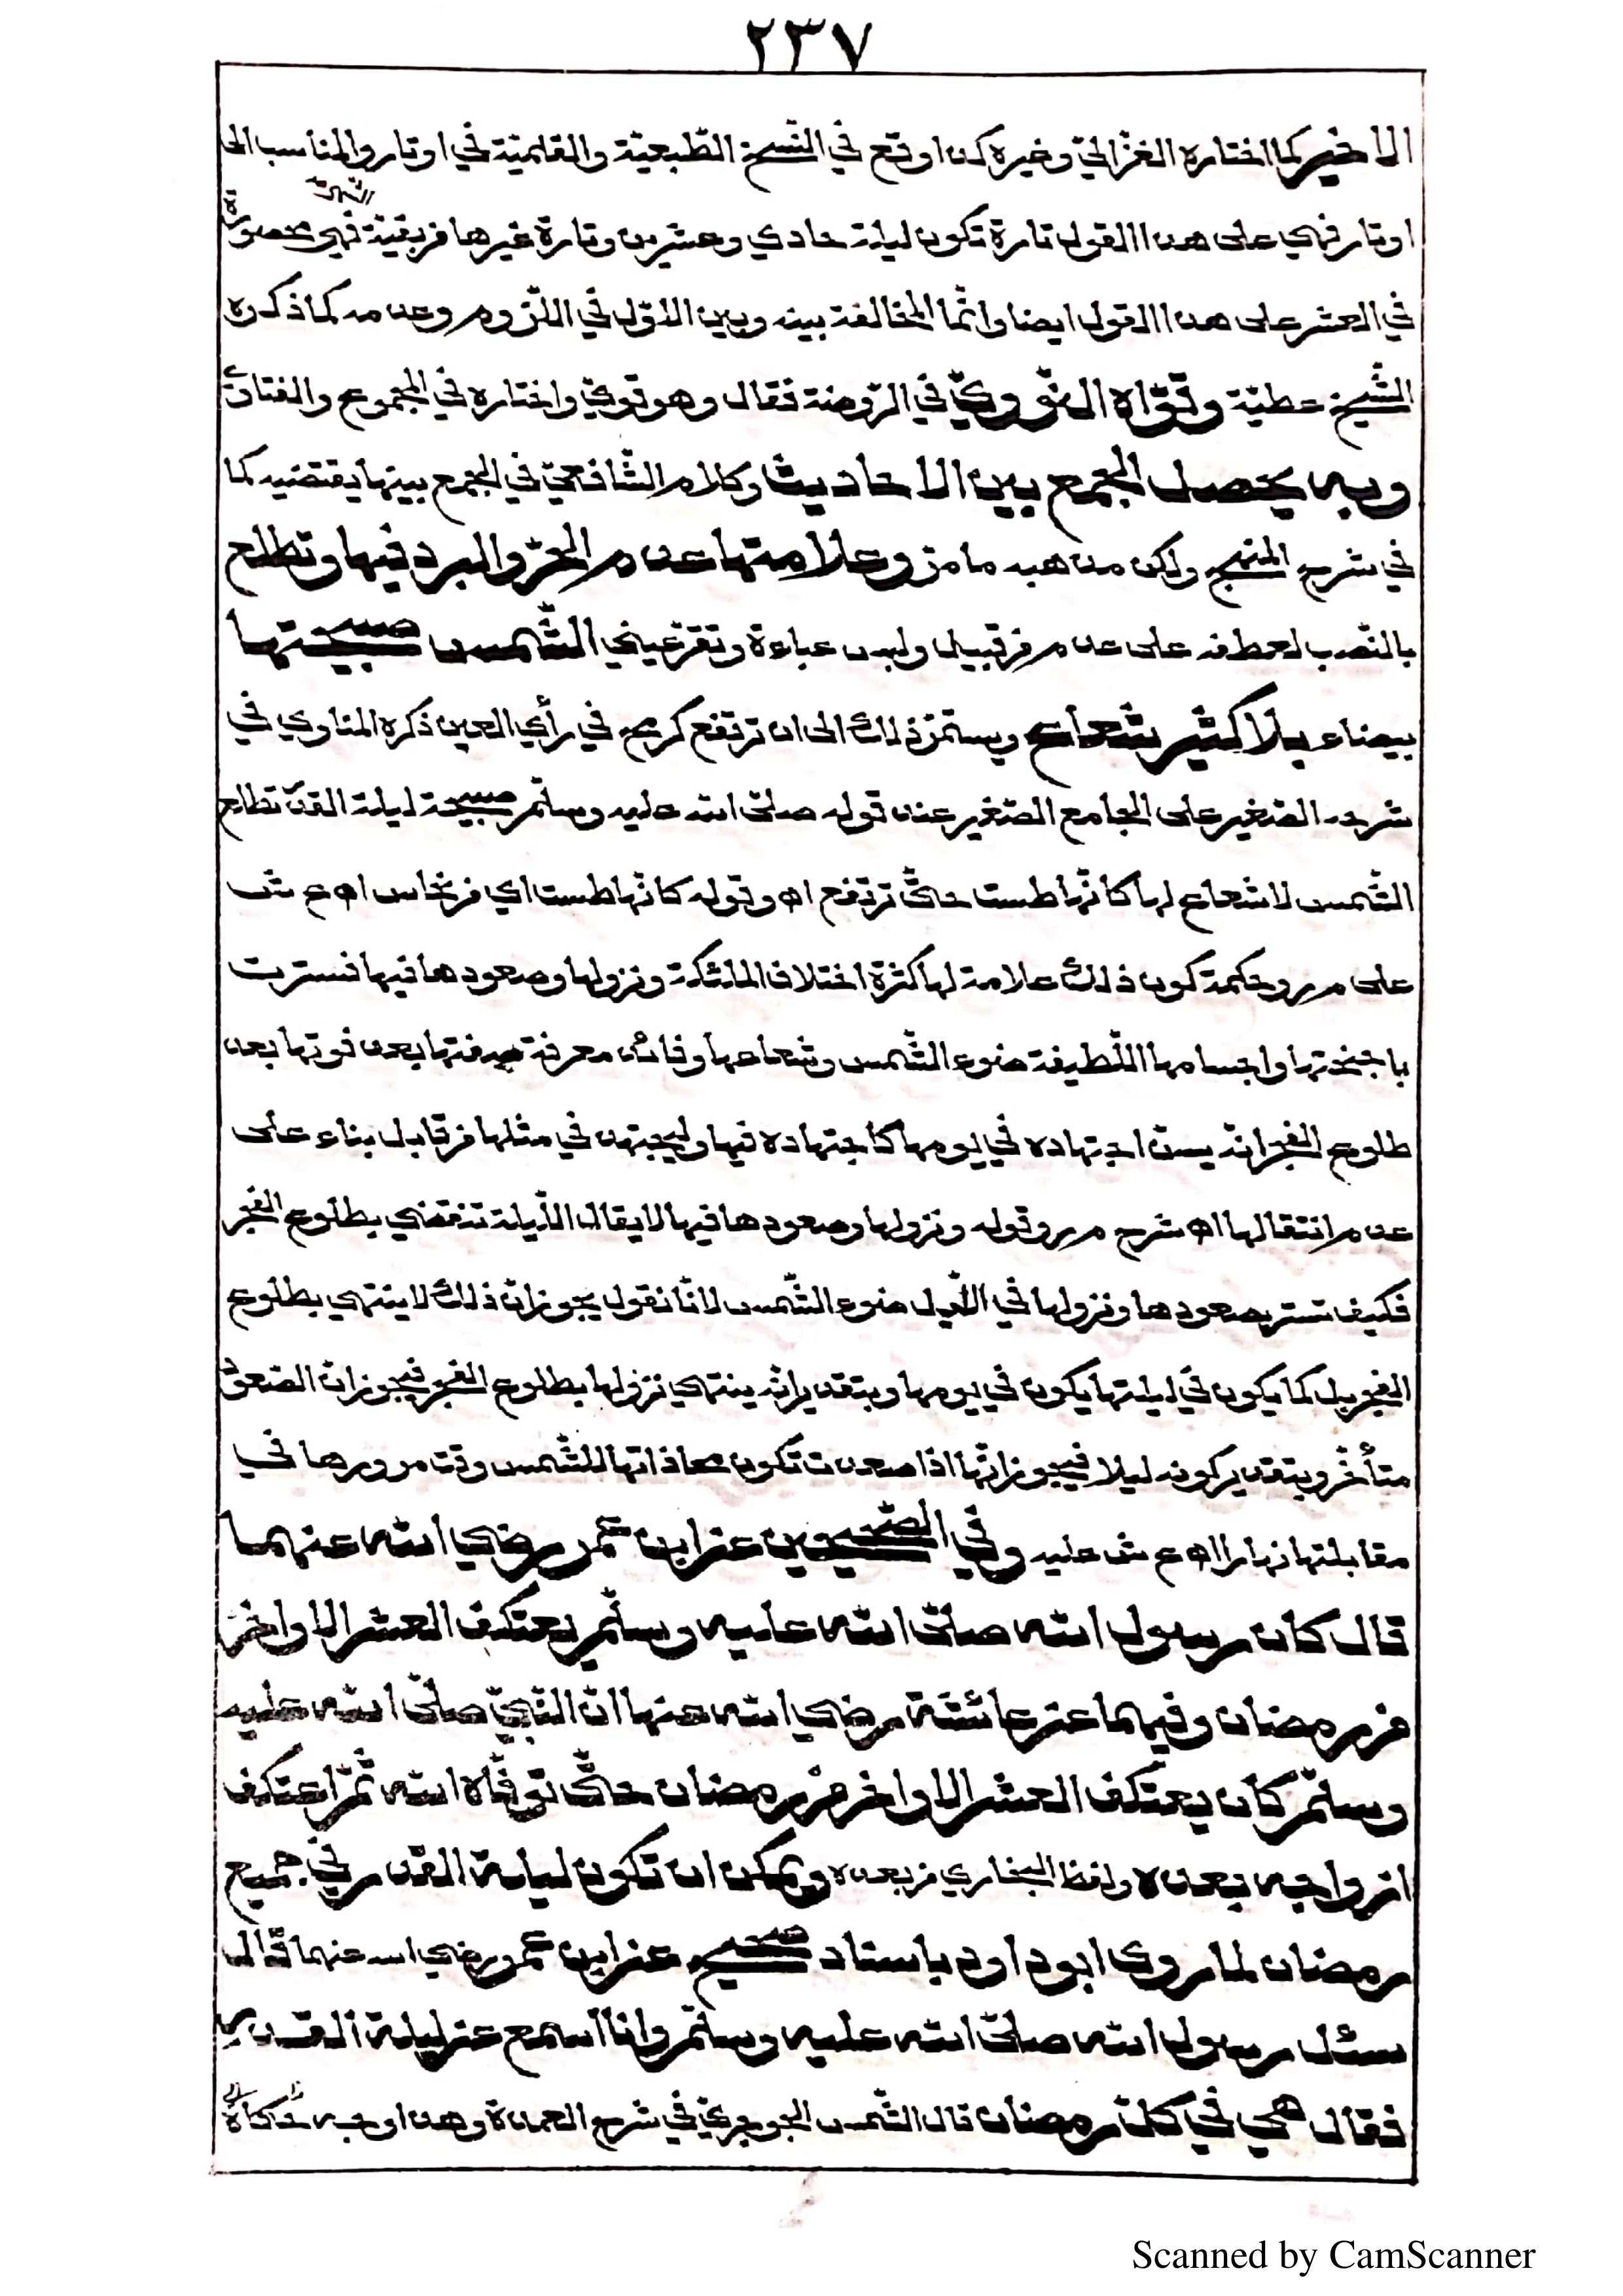 ٢٣٧
الاخير كما اختاره الغزالي وغيره كذا وقع في النسخ الطبعية والقلمية في اوتار والمناسب الى
الشريفة
اوتار فهي على هذا القول تارة تكون ليلة حادي وعشرين وتارة غيرها فريقية فهي محصورة
في العشر على هذا القول ايضا وانما المخالفة بينه وبين الاول في اللزوم وعدمه كما ذكره
الشيخ عطية وقواه النووي في الروضة فقال وهو قوي واختاره في المجموع والفتاوى
وبه يحصل الجمع بين الاحاديث وكلام الشافعي في الجمع بينها يقتضيه كما
في شرح المنهج ولكن مذهبه ما مر وعلامتها عدم الحر والبرد فيها وتطلع
بالنصب لعطفه على عدم فرقبيل ولبس عباءة وتقر عيني الشمس صبيحتها
بيضاء بلا كثير شعاع ويستمر ذلك الى ان ترتفع كرمح في رأي العين ذكره المناوي في
شرحه الصغير على الجامع الصغير عند قوله صلى الله عليه وسلم صبيحة ليلة القدر تطلع
الشمس لا شعاع لها كانها طست حتى ترتفع اه وقوله كانها طست اي فر نحاس اه ع ش
على م ر وحكمة كون ذلك علامة لها كثرة اختلاف الملئكة ونزولها وصعودها فيها فسترت
باجنحتها واجسامها اللطيفة ضوء الشمس وشعاعها وفائدة معرفة صفتها بعد فوتها بعد
طلوع الفجر انه يسن اجتهاده في يومها كاجتهاده فيها وليجتهد في مثلها فر قابل بناء على
عدم انتقالها اه شرح م ر وقوله ونزولها وصعودها فيها لا يقال الليلة تنقضي بطلوع الفجر
فكيف تستر بصعودها ونزولها في الليل ضوء الشمس لانا نقول يجوز ان ذلك لا ينتهي بطلوع
الفجر بل كما يكون في ليلتها يكون في يومها وبتقدير انه ينتهي نزولها بطلوع الفجر فيجوز ان الصعود
متأخر وبتقدير كونه ليلا فيجوز انها اذا صعدت تكون محاذاتها للشمس وقت مرورها في
مقابلتها نهارا اه ع ش عليه وفي الصحيحين عن ابن عمر رضي الله عنهما
قال كان رسول الله صلى الله عليه وسلم يعتكف العشر الاواخر
فر رمضان وفيهما عن عائشة رضي الله عنها ان النبي صلى الله عليه
وسلم كان يعتكف العشر الاواخر من رمضان حتى توفاه الله ثم اعتكف
ازواجه بعده ولفظ البخاري فر بعده ويمكن ان تكون ليلة القدر في جميع
رمضان لما روى ابو داود باسناد صحيح عن ابن عمر رضي الله عنهما قال
سئل رسول الله صلى الله عليه وسلم وانا اسمع عن ليلة القدر
فقال هي في كل رمضان قال الشمس الجوجري في شرح العمدة وهذا وجه حكاه
Scanned by CamScanner